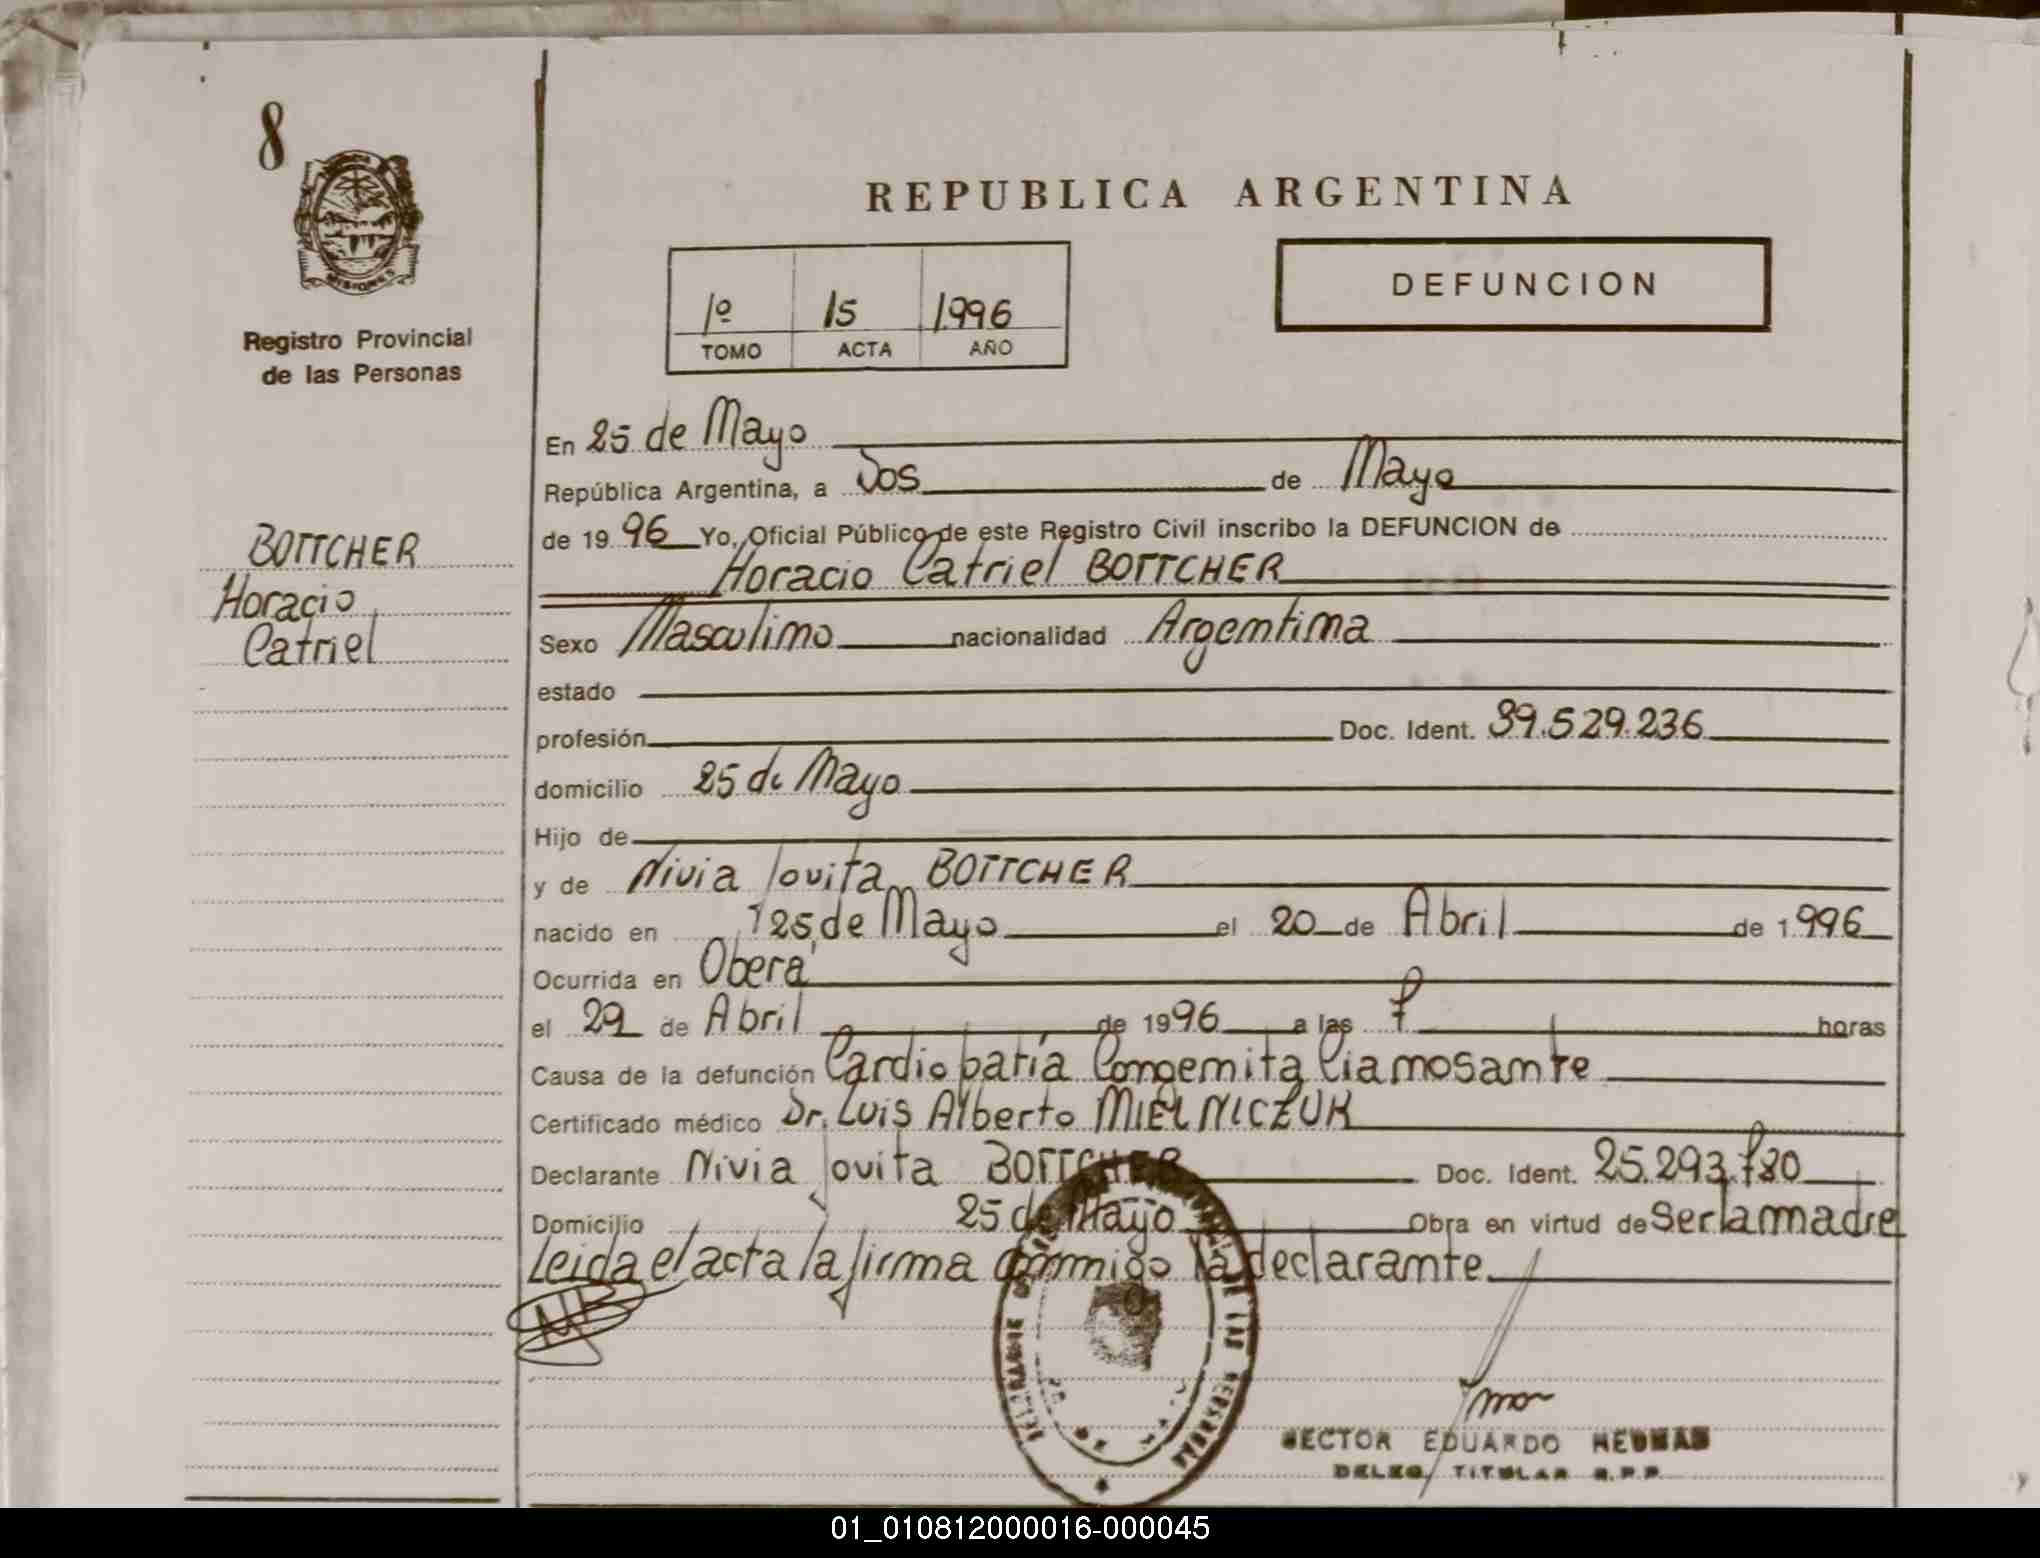 8
MISIONES
Registro Provincial
de las Personas
REPUBLICA ARGENTINA
1º 15 1.996
TOMO ACTA AÑO
DEFUNCION
BOTTCHER
Horacio
Catriel
En 25 de Mayo
República Argentina, a Dos de Mayo
de 19 96 Yo, Oficial Público de este Registro Civil inscribo la DEFUNCION de
Horacio Catriel BOTTCHER
Sexo Masculino nacionalidad Argentina
estado
profesión Doc. Ident. 39.529.236
domicilio 25 de Mayo
Hijo de
y de Nivia Jovita BOTTCHER
nacido en 25 de Mayo el 20 de Abril de 1.996
Ocurrida en Oberá
el 29 de Abril de 1996 a las 7 horas
Causa de la defunción Cardiopatía Congenita Cianosante
Certificado médico Dr. Luis Alberto MIELNICZUK
Declarante Nivia Jovita BOTTCHER Doc. Ident. 25.293.780
Domicilio 25 de Mayo Obra en virtud de Ser la madre
Leida el acta la firma conmigo la declarante
DE LAS PERSONAS
HECTOR EDUARDO
DELEG. TITULAR R.P.P.
01_010812000016-000045